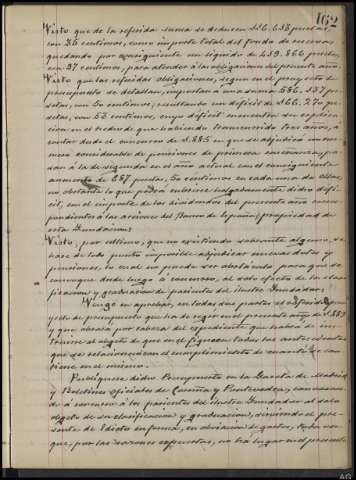 162
Visto que de la referida suma se deducen 26,658 pesetas
con 26 centimos, como importe total del fondo de reserva,
quedando por consiguiente un liquido de 459.866 pesetas
con 97 centimos, para atender à las obligaciones del presente año.
Visto que las referidas obligaciones, segun en el proyecto de
presupuesto se detallan, importan à una suma 526.137 pe-
setas, con 50 centimos, resultando un deficit de 66.270 pe-
setas, con 53 centimos, cuyo deficit encuentra su esplica-
cion en el hecho de que habiendo transcurrido tres años, à
contar desde el comienzo de 1.885 en que se adjudicó un nú-
mero considerable de pensiones de primera enseñanza, pa-
san à la de segunda en el año actual con el consiguiente
aumento de 287 pesetas, 50 centimos en cada una de ellas,
no obstante lo que podrá cubrirse holgadamente dicho défi-
cit, con el importe de los dividendos del presente año corres-
pondientes à las acciones del Banco de España, propiedad de
esta Fundacion.
Visto, por último, que no existiendo sobrante alguno, se
hace de todo punto imposible adjudicar nuevas dotes y
pensiones, lo cual no puede ser obstáculo para que se
convoque desde luego à concurso, al solo efecto de la clasi-
ficacion y graduacion de parientes del ilustre Fundador;
Vengo en aprobar, en todas sus partes el referido pro-
yecto de presupuesto que ha de regir en el presente año de 1.889
y que obrará por cabeza del expediente que habrá de ins-
truirse al objeto de que en él figuren todos los antecedentes
que se relacionen con el cumplimiento de cuanto se con-
tiene en el mismo.
Publíquese dicho Presupuesto en la Gaceta de Madrid
y Boletines oficiales de Coruña y Pontevedra, convocan-
do à concurso à los parientes del ilustre Fundador al solo
objeto de su clasificacion y graduacion, sirviendo el pre-
sente de Edicto en forma, en obviacion de gastos, toda vez
que, por las razones expuestas, no há lugar en el presente